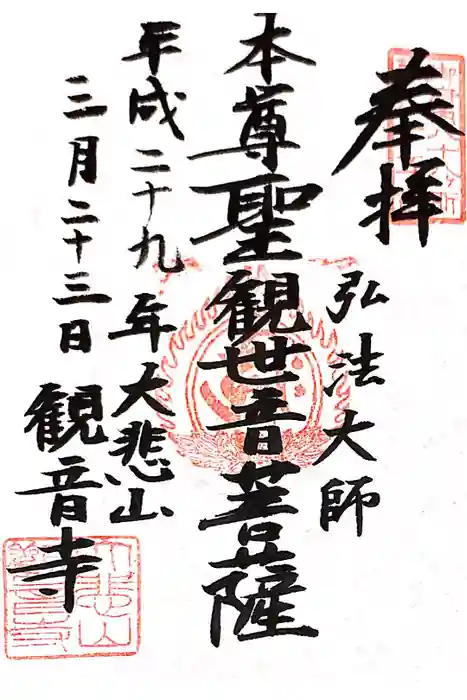 奉拝
弘法大師
本尊聖観世音菩薩
平成二十九年
大悲山
三月二十三日
観音寺